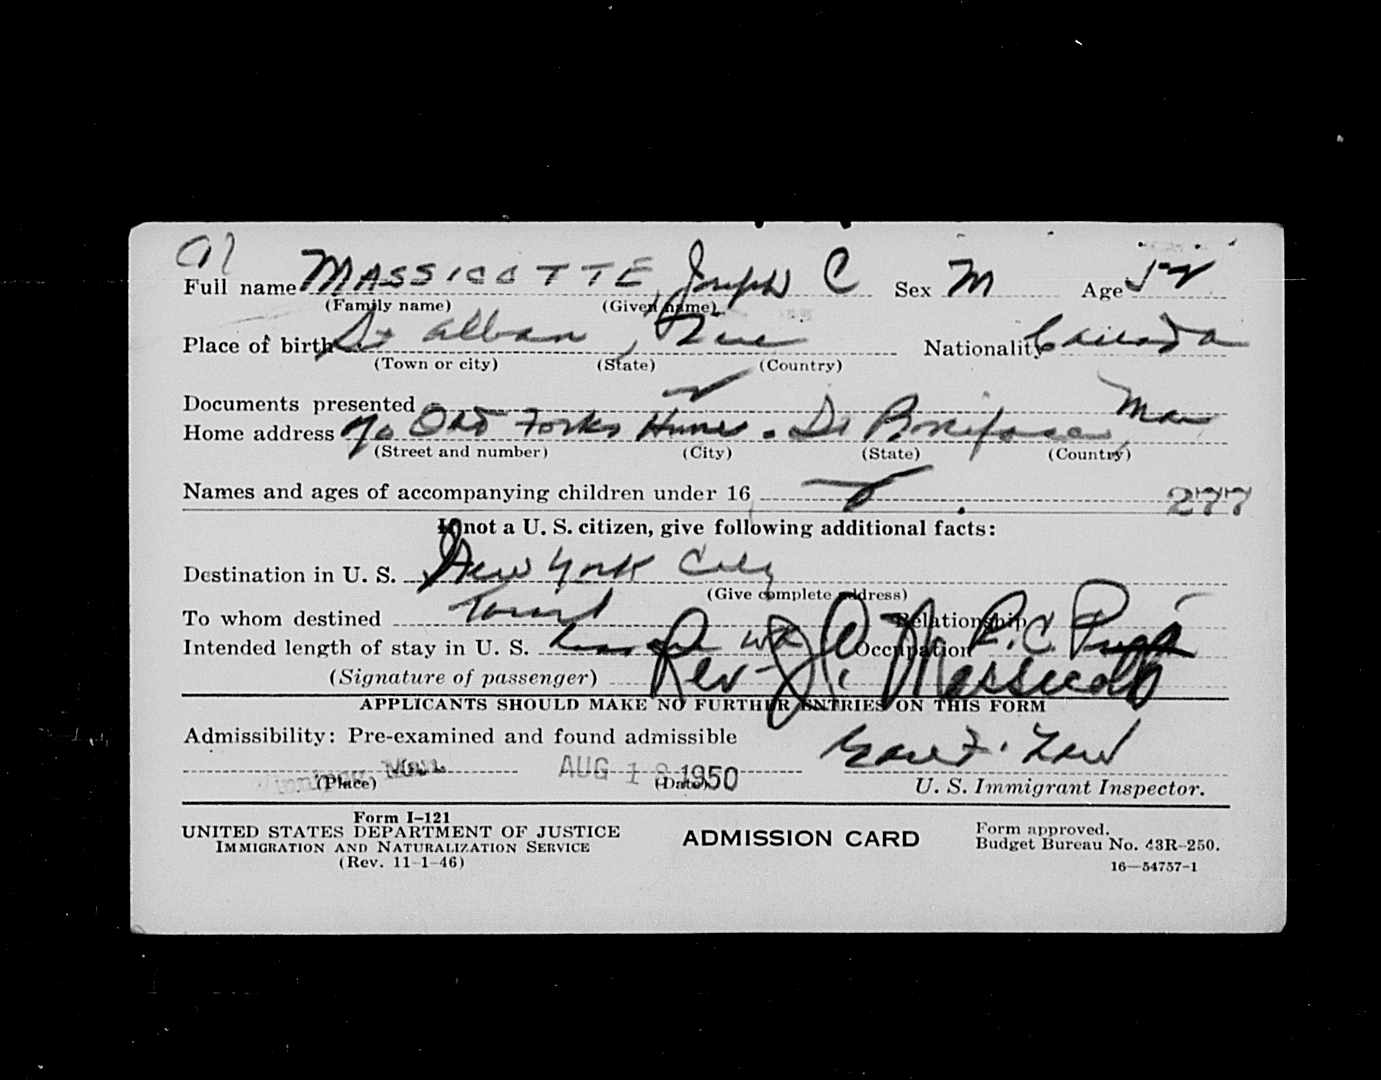 Full name MASSICOTTE, Joseph C Sex M Age 52
(Family name) (Given name)
Place of birth St Alban, Que Nationality Canada
(Town or city) (State) (Country)
Documents presented
Home address c/o Old Folks Home. St Boniface, Man
(Street and number) (City) (State) (Country)
Names and ages of accompanying children under 16 277
If not a U. S. citizen, give following additional facts:
Destination in U. S. New York City
(Give complete address)
To whom destined Tourist Relationship
Intended length of stay in U. S. Less one wk Occupation R. C. Priest
(Signature of passenger) Rev. J. C. Massicotte
APPLICANTS SHOULD MAKE NO FURTHER ENTRIES ON THIS FORM
Admissibility: Pre-examined and found admissible
Winnipeg Man. AUG 18 1950
(Place) (Date) U. S. Immigrant Inspector.
Form I-121
UNITED STATES DEPARTMENT OF JUSTICE
IMMIGRATION AND NATURALIZATION SERVICE
(Rev. 11-1-46)
ADMISSION CARD
Form approved.
Budget Bureau No. 43R-250.
16—54757-1